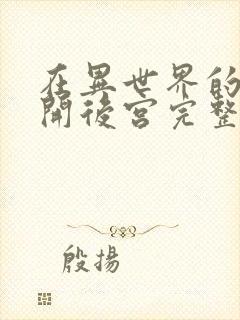 在異世界的
開後宮完整
殷揚